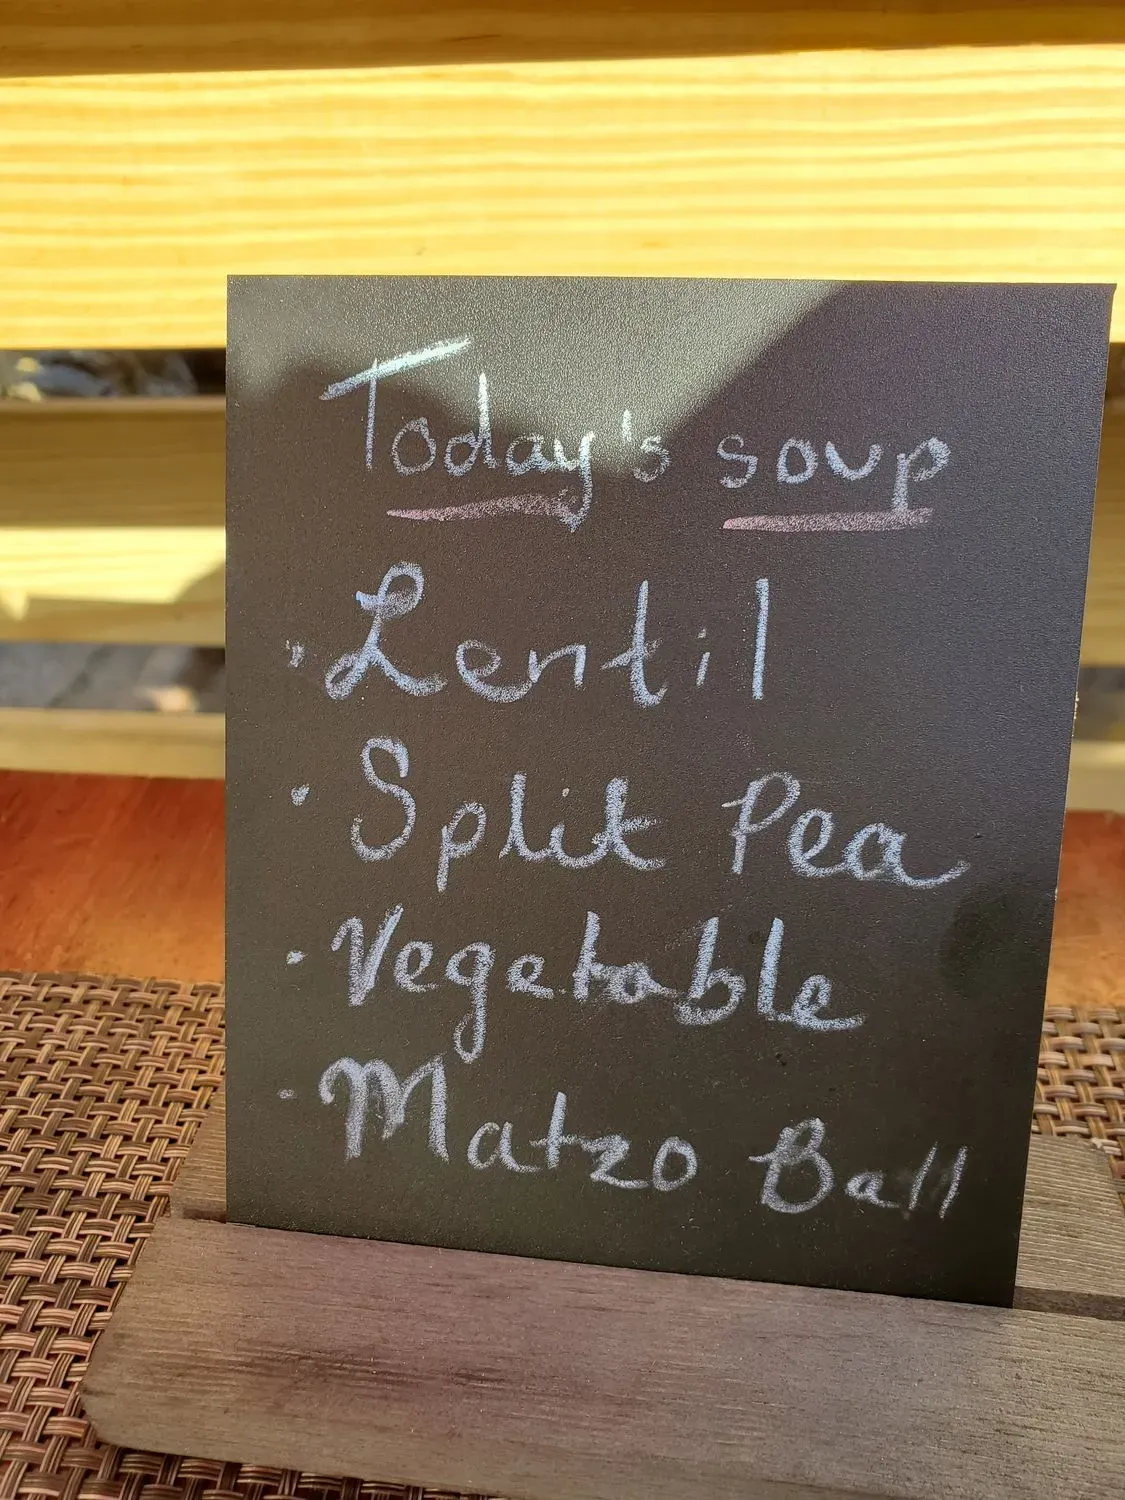 Today's soup
· Lentil
· Split Pea
· Vegetable
· Matzo Ball